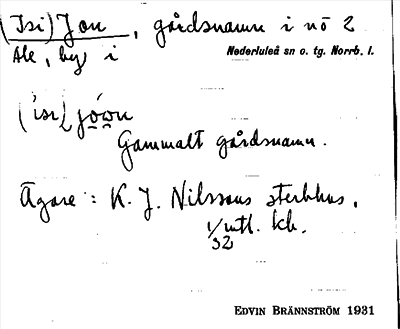 (Isi)Jon, gårdsnamn i nö 2
Ale, by i Nederluleå sn o. tg. Norrb. l.
('isi)jóẉn
Gammalt gårdsnamn.
Ägare: K. J. Nilssons sterbhus.
1/32 mtl. kb.
EDVIN BRÄNNSTRÖM 1931